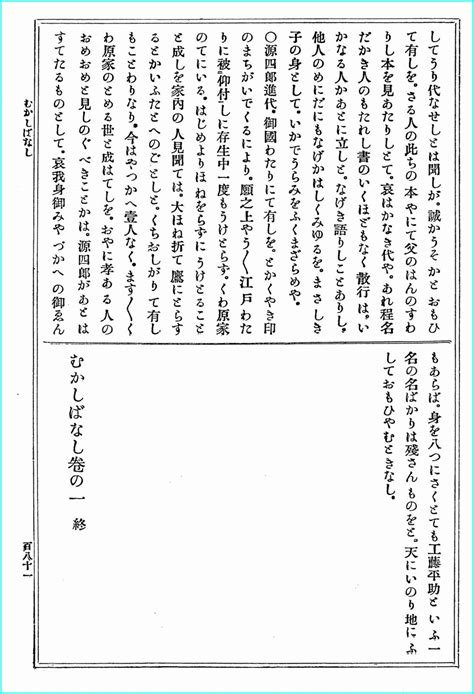 してうり代なせしとは聞しが。誠かうそかとおもひ
て有しを。さる人の此ちの本やにて父のはんのすわ
りし本を見あたりしとて。哀はかなき代や。あれ程名
だかき人のもたれし書のいくほどもなく散行は。い
かなる人かあとに立しと。なげき語りしことありし。
他人のめにだにもなげかはしくみゆるを。まさしき
子の身として。いかでうらみをふくまざらめや。
○源四郎進代。御國わたりにて有しを。とかくやき印
のまちがいでくるにより。願之上やう〳〵江戸わた
りに被。仰付しに存生中一度もうけとらず。くわ原家
のてにいる。はじめよりほねをらずにうけとること
と成しを家内の人見聞ては。大ほね折て鷹にとらす
るとかいふたとへのごとしと。くちおしがりて有し
もことわりなり。今はやつかへ壹人なく。ます〳〵く
わ原家のとめる世と成はてしを。おやに孝ある人の
おめおめと見しのぐべきことかは。源四郎があとは
すてたるものとして。哀我身御みやづかへの御ゑん
もあらば。身を八つにさくとても工藤平助といふ一
名の名ばかりは殘さんものをと。天にいのり地にふ
しておもひやむときなし。
むかしばなし卷の一 終
むかしばなし
百八十一